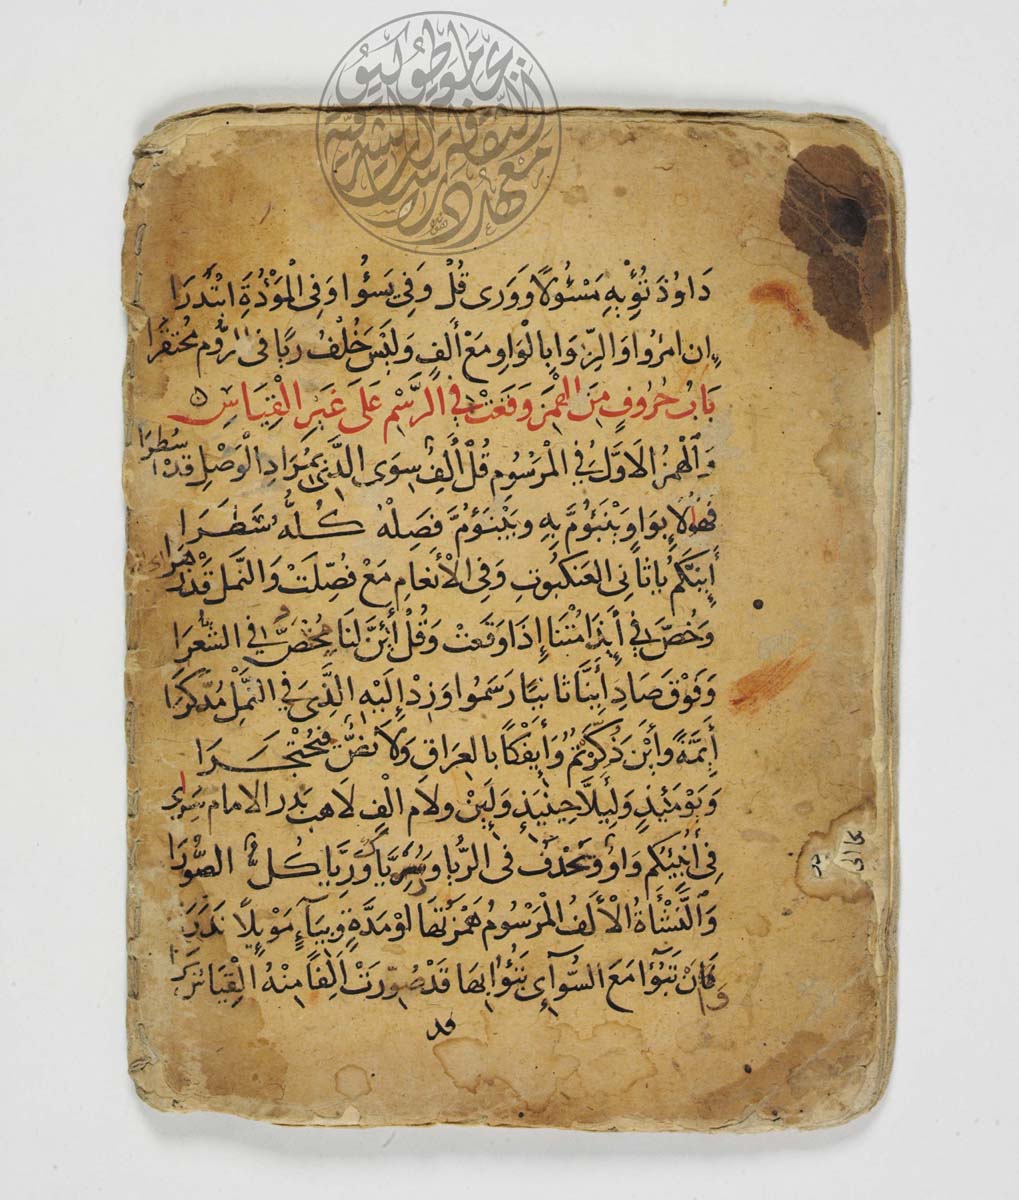 دَاوُدَ تُؤْيهِ مَسْئُولًا وَوُرِىَ قُلْ وَفِى يَسُئُوا وَفِى الْمَوْءُدَةِ ابْتُدِرَا
إِنِ امْرُوا وَالرِّبَوا بِالْوَاوِ مَعْ أَلِفٍ وَلَيْسَ خُلْفُ رِبًا فِى الرُّومِ مُحْتَقَرَا
بَابُ حُرُوفٍ مِنَ الهَمْزِ وَقَعَتْ فِي الرَّسْمِ عَلَى غَيْرِ الْقِيَاسِ
وَالْهَمْزُ الاَوَّلُ فِي الْمَرْسُومِ قُلْ أَلِفٌ سِوَى الَّذِى بِمُرَادِ الْوَصْلِ قَدْ سُطِرَا
فَهٰؤُلَا بِوَاوٍ يَبْنَؤُمَّ بِهِ وَيَبْنَؤُمَّ فَصِلْهُ كُلَّهُ سَطَرَا
أَئِنَّكُمْ يَا ثَانِى العَنْكَبُوتِ وَفِى الْأَنْعَامِ مَعْ فُصِّلَتْ وَالنَّمْلِ قَدْ زَهَرَا
وَخُصَّ فِي أَئِذَا مِتْنَا إِذَا وَقَعَتْ وَقُلْ أَئِنَّ لَنَا يُخَصُّ فِي الشُّعَرَا
وَفَوْقَ صَادِ أَئِنَّا ثَانِيًا رَسَمُوا وَزِدْ إِلَيْهِ الَّذِى فِي النَّمْلِ مُدَّكِرَا
أَئِمَّةً وَأَئِنْ ذُكِّرْتُمُ وَأَئِفْكًا بِالعِرَاقِ وَلَا نَصٌّ فَيُحْتَجَرَا
وَيَوْمَئِذٍ وَلِئَلَّا حِينَئِذٍ وَلَئِنْ وَلَامُ اَلِف لِاَهَبْ بَدْرُ الامَامِ سَرَى
فِى أَنَبِئُكُم وَاوٌ وَيُحْذَفُ فِى الرُّيَا وَرِيًّا وَرِيَّا كُلٌّ الصُّوَرَا
وَالنَّشْأَةُ الْأَلِفُ الْمَرْسُومُ هَمْزَتُهَا اَوْ مَدَّةٌ وَبِيَاءٍ مَوْئِلًا نَدَرَا
وَاَنْ تَبُوْأَ مَعَ السُّوآى تَنُوْأُ بِهَا قَدْ صُوِّرَتْ اَلِفًا مِنْهُ الْقِيَاسُ بَرَى
قد